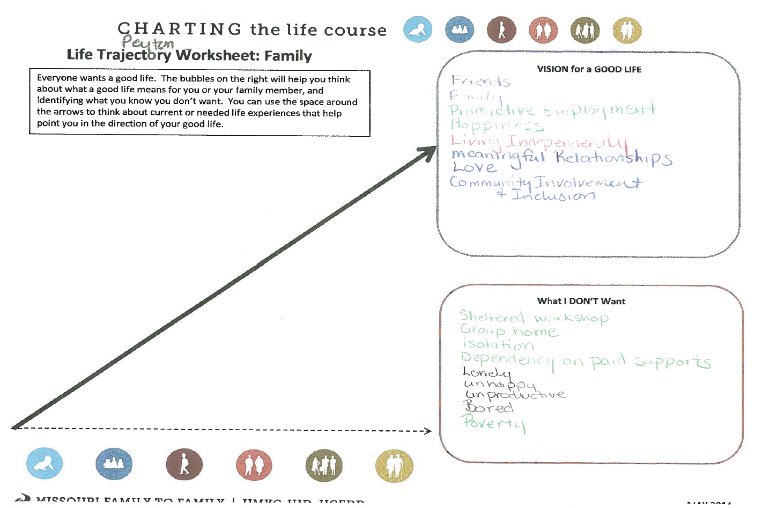 CHARTING the life course
Peyton
Life Trajectory Worksheet: Family
Everyone wants a good life. The bubbles on the right will help you think
about what a good life means for you or your family member, and
identifying what you know you don't want. You can use the space around
the arrows to think about current or needed life experiences that help
point you in the direction of your good life.
VISION for a GOOD LIFE
Friends
Family
Productive Employment
Happiness
Living Independently
meaningful Relationships
Love
Community Involvement
+ Inclusion
What I DON'T Want
Sheltered workshop
Group home
isolation
Dependency on paid supports
Lonely
unhappy
unproductive
Bored
Poverty
MISSOURI FAMILY TO FAMILY | UMKC IHD, UCEDD
MAY 2014